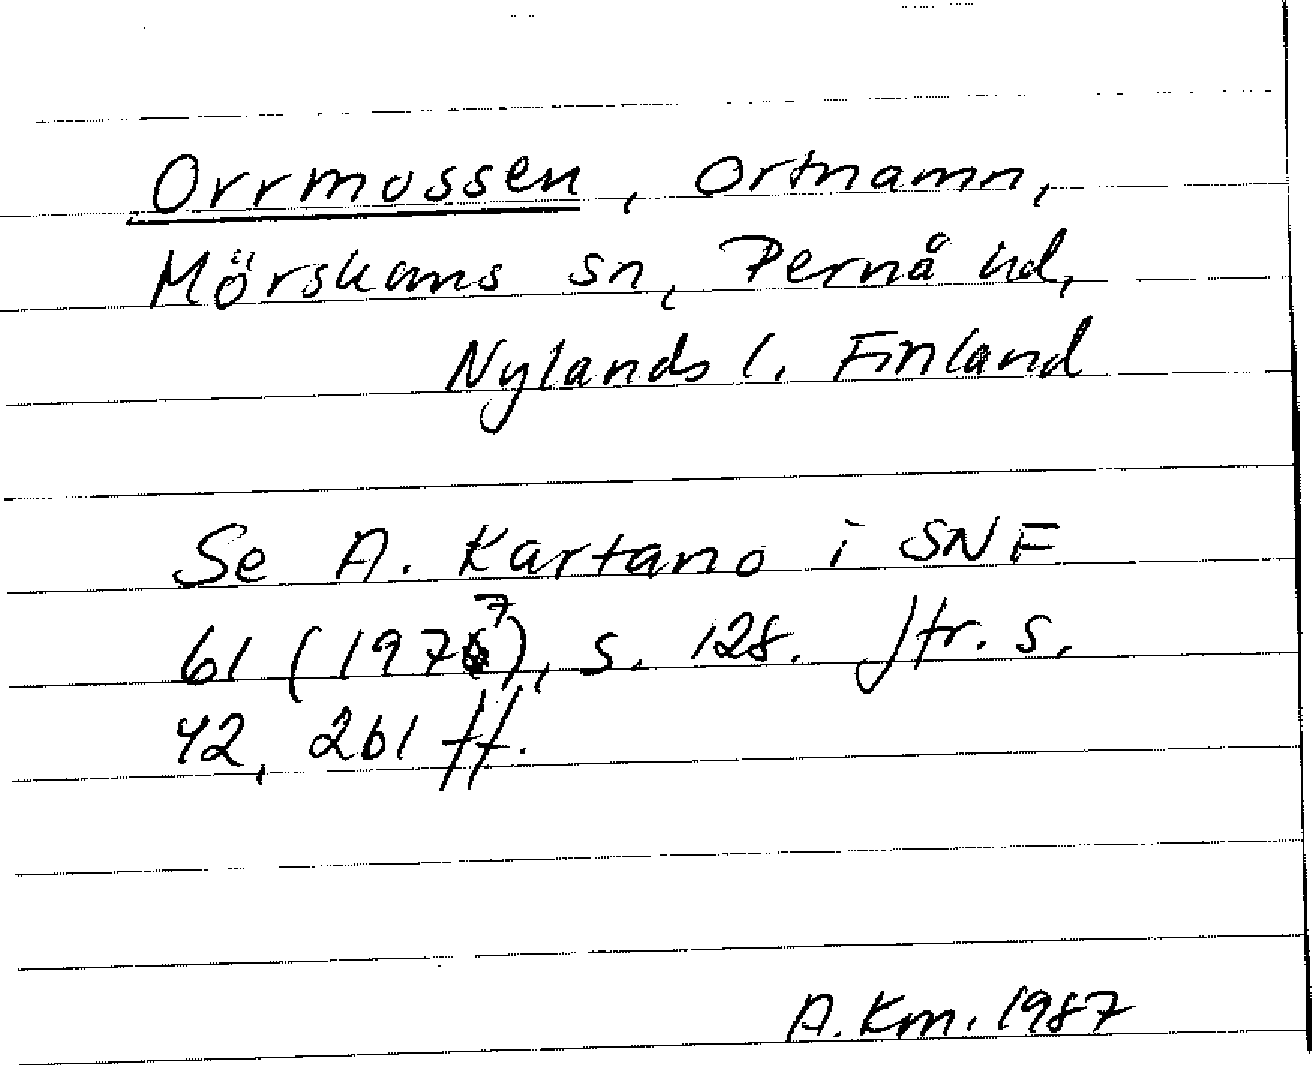 Orrmossen, ortnamn,
Mörskoms sn, Pernå hd,
Nylands l. Finland
Se A. Kartano i SNF
61 (1977), s. 128. Jfr. s.
42, 261 ff.
A. Km. 1987